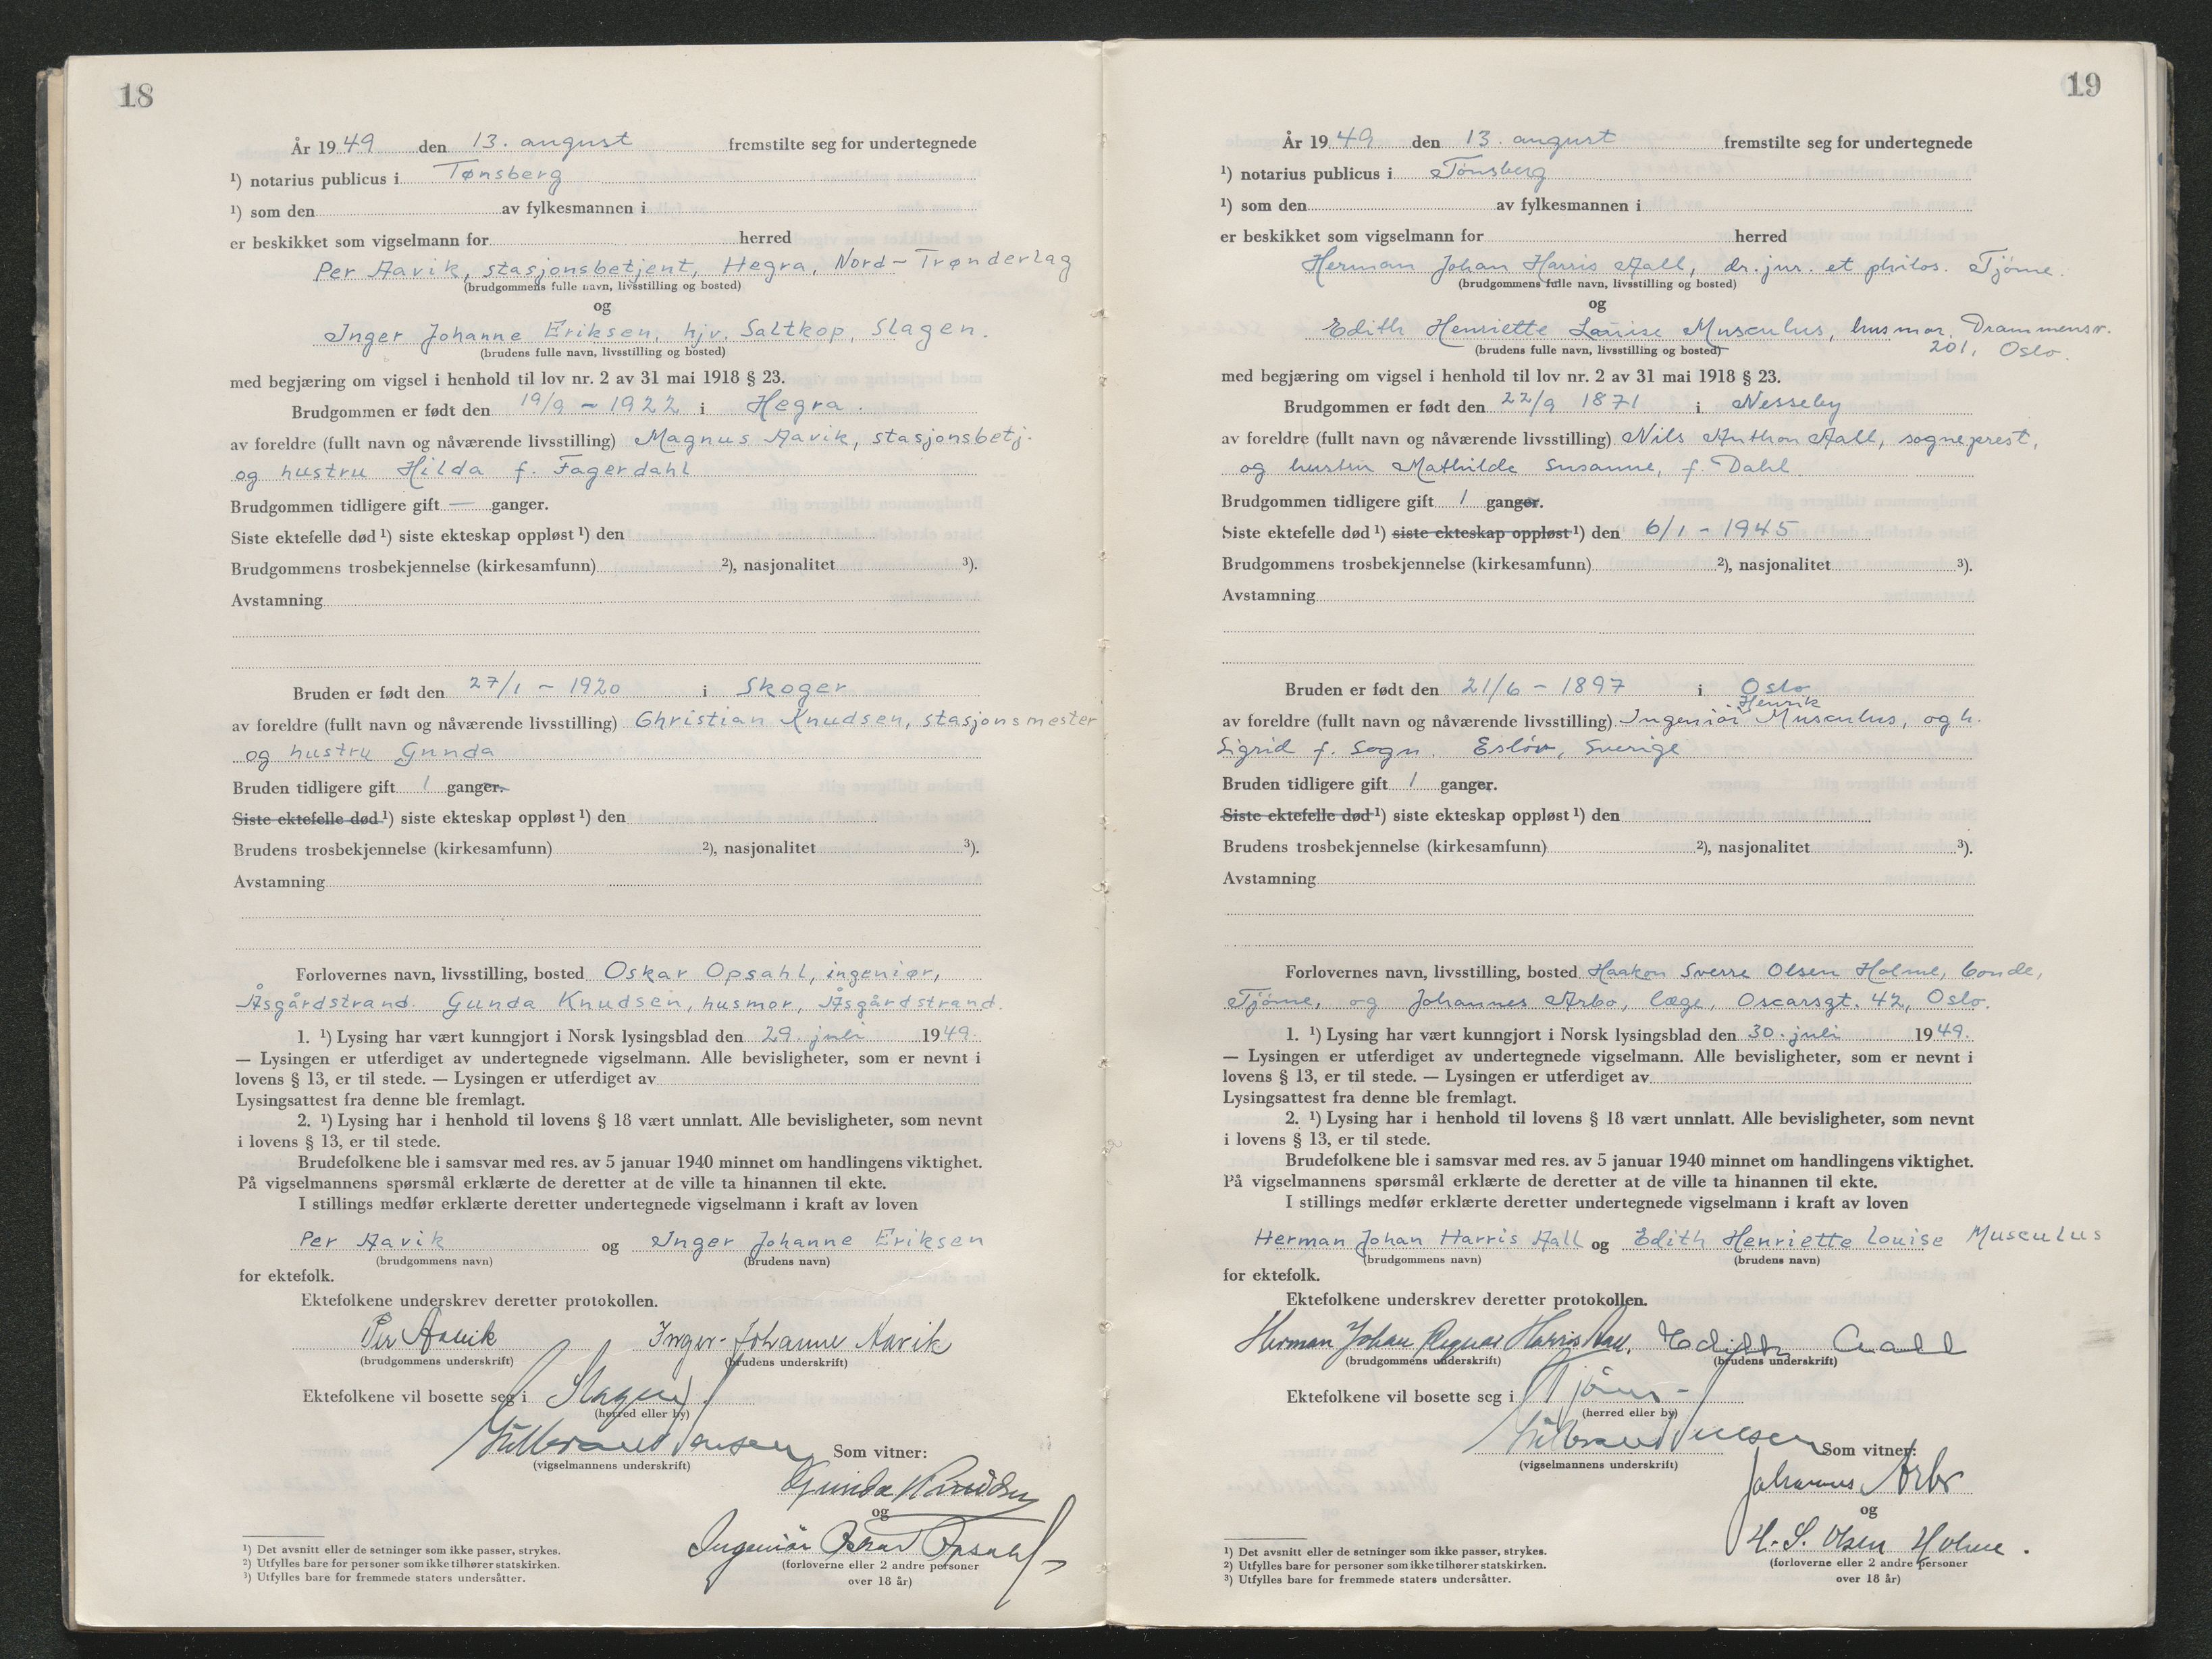 18
År 1949 den 13. august fremstilte seg for undertegnede
¹) notarius publicus i Tønsberg
¹) som den av fylkesmannen i
er beskikket som vigselmann for herred
Per Aavik, stasjonsbetjent, Hegra, Nord-Trønderlag
(brudgommens fulle navn, livsstilling og bosted)
og
Inger Johanne Eriksen, hjv. Saltkop, Slagen.
(brudens fulle navn, livsstilling og bosted)
med begjæring om vigsel i henhold til lov nr. 2 av 31 mai 1918 § 23.
Brudgommen er født den 19/9 - 1922 i Hegra.
av foreldre (fullt navn og nåværende livsstilling) Magnus Aavik, stasjonsbetj.
og hustru Hilda f. Fagerdahl
Brudgommen tidligere gift — ganger.
Siste ektefelle død ¹) siste ekteskap oppløst ¹) den
Brudgommens trosbekjennelse (kirkesamfunn) ²), nasjonalitet ³).
Avstamning
Bruden er født den 27/1 - 1920 i Skoger
av foreldre (fullt navn og nåværende livsstilling) Christian Knudsen, stasjonsmester
og hustru Gunda
Bruden tidligere gift 1 ganger.
Siste ektefelle død ¹) siste ekteskap oppløst ¹) den
Brudens trosbekjennelse (kirkesamfunn) ²), nasjonalitet ³).
Avstamning
Forlovernes navn, livsstilling, bosted Oskar Opsahl, ingeniør,
Åsgårdstrand. Gunda Knudsen, husmor, Åsgårdstrand.
1. ¹) Lysing har vært kunngjort i Norsk lysingsblad den 29. juli 1949.
— Lysingen er utferdiget av undertegnede vigselmann. Alle bevisligheter, som er nevnt i
lovens § 13, er til stede. — Lysingen er utferdiget av
Lysingsattest fra denne ble fremlagt.
2. ¹) Lysing har i henhold til lovens § 18 vært unnlatt. Alle bevisligheter, som nevnt
i lovens § 13, er til stede.
Brudefolkene ble i samsvar med res. av 5 januar 1940 minnet om handlingens viktighet.
På vigselmannens spørsmål erklærte de deretter at de ville ta hinannen til ekte.
I stillings medfør erklærte deretter undertegnede vigselmann i kraft av loven
Per Aavik og Inger Johanne Eriksen
(brudgommens navn) (brudens navn)
for ektefolk.
Ektefolkene underskrev deretter protokollen.
Per Aavik Inger-Johanne Aavik
(brudgommens underskrift) (brudens underskrift)
Ektefolkene vil bosette seg i Slagen
(herred eller by)
Hillbrand Jensen Som vitner:
(vigselmannens underskrift)
Gunda Knudsen
og
Ingeniør Oskar Opsahl
(forloverne eller 2 andre personer
over 18 år)
¹) Det avsnitt eller de setninger som ikke passer, strykes.
²) Utfylles bare for personer som ikke tilhører statskirken.
³) Utfylles bare for fremmede staters undersåtter.
19
År 1949 den 13. august fremstilte seg for undertegnede
¹) notarius publicus i Tönsberg
¹) som den av fylkesmannen i
er beskikket som vigselmann for herred
Herman Johan Harris Aall, dr. jur. et philos. Tjöme.
(brudgommens fulle navn, livsstilling og bosted)
og
Edith Henriette Louise Musculus, husmor, Drammensv.
(brudens fulle navn, livsstilling og bosted) 201, Oslo.
med begjæring om vigsel i henhold til lov nr. 2 av 31 mai 1918 § 23.
Brudgommen er født den 22/9 1871 i Nesseby
av foreldre (fullt navn og nåværende livsstilling) Nils Anthon Aall, sogneprest,
og hustru Mathilde Susanne, f. Dahl
Brudgommen tidligere gift 1 ganger.
Siste ektefelle død ¹) siste ekteskap oppløst ¹) den 6/1 - 1945
Brudgommens trosbekjennelse (kirkesamfunn) ²), nasjonalitet ³).
Avstamning
Bruden er født den 21/6 - 1897 i Oslo
Henrik
av foreldre (fullt navn og nåværende livsstilling) Ingeniör Musculus, og h.
Sigrid f. Sogn. Eslöv, Sverige
Bruden tidligere gift 1 ganger.
Siste ektefelle død ¹) siste ekteskap oppløst ¹) den
Brudens trosbekjennelse (kirkesamfunn) ²), nasjonalitet ³).
Avstamning
Forlovernes navn, livsstilling, bosted Haakon Sverre Olsen Holme, bonde,
Tjöme, og Johannes Arbo, læge, Oscarsgt. 42, Oslo.
1. ¹) Lysing har vært kunngjort i Norsk lysingsblad den 30. juli 1949.
— Lysingen er utferdiget av undertegnede vigselmann. Alle bevisligheter, som er nevnt i
lovens § 13, er til stede. — Lysingen er utferdiget av
Lysingsattest fra denne ble fremlagt.
2. ¹) Lysing har i henhold til lovens § 18 vært unnlatt. Alle bevisligheter, som nevnt
i lovens § 13, er til stede.
Brudefolkene ble i samsvar med res. av 5 januar 1940 minnet om handlingens viktighet.
På vigselmannens spørsmål erklærte de deretter at de ville ta hinannen til ekte.
I stillings medfør erklærte deretter undertegnede vigselmann i kraft av loven
Herman Johan Harris Aall og Edith Henriette Louise Musculus
(brudgommens navn) (brudens navn)
for ektefolk.
Ektefolkene underskrev deretter protokollen.
Herman Johan Harris Aall. Edith Aall
(brudgommens underskrift) (brudens underskrift)
Ektefolkene vil bosette seg i Tjöme -
(herred eller by)
Hillbrand Jensen Som vitner:
(vigselmannens underskrift)
Johannes Arbo
og
H. S. Olsen Holme.
(forloverne eller 2 andre personer
over 18 år)
¹) Det avsnitt eller de setninger som ikke passer, strykes.
²) Utfylles bare for personer som ikke tilhører statskirken.
³) Utfylles bare for fremmede staters undersåtter.